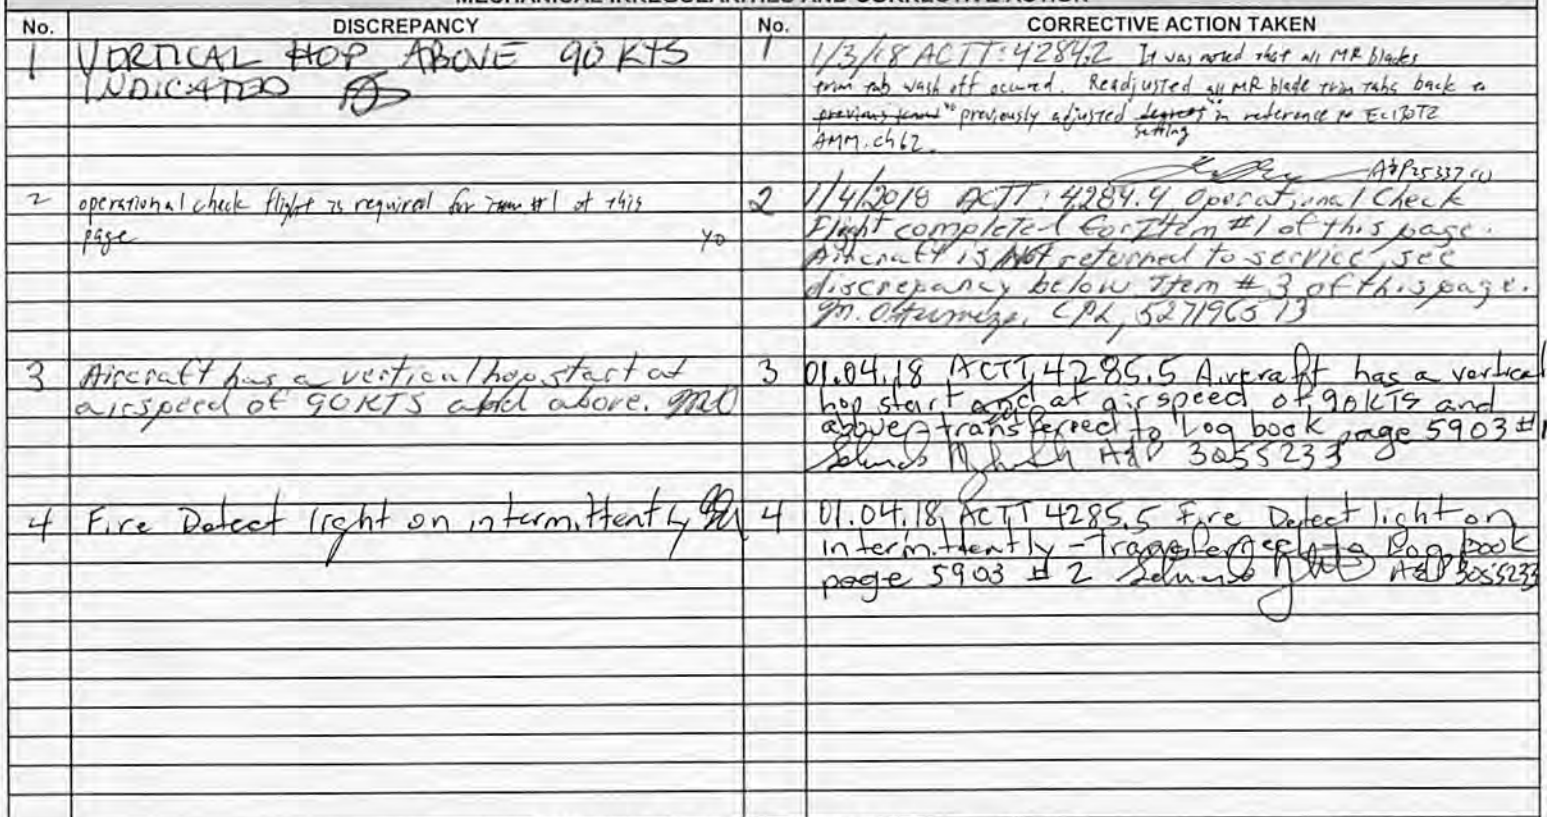 MECHANICAL IRREGULARITIES AND CORRECTIVE ACTION
No. DISCREPANCY No. CORRECTIVE ACTION TAKEN
1 VERTICAL HOP ABOVE 90 KTS
INDICATED
1 1/3/18 ACTT: 4284.2 It was noted that all MR blades
trim tab wash off occured. Readjusted all MR blade trim tabs back to
previous "YO" previously adjusted degrees "YO" in reference to EC130T2
setting
AMM.ch62.
A&P25337
2 operational check flight is required for item #1 of this
page YO
2 1/4/2018 ACTT: 4284.4 Operational Check
Flight completed for Item #1 of this page.
Aircraft is Not returned to service, see
discrepancy below Item # 3 of this page.
CPL, 527196573
3 Aircraft has a vertical hop start at
airspeed of 90KTS and above.
3 01.04.18 ACTT 4285.5 Aircraft has a vertical
hop start and at airspeed of 90KTS and
above - transferred to Log book page 5903 #1
A&P 3055233
4 Fire Detect light on intermittently
4 01.04.18, ACTT 4285.5 Fire Detect light on
intermittently - Transferred to Log book
page 5903 # 2 A&P 3055233